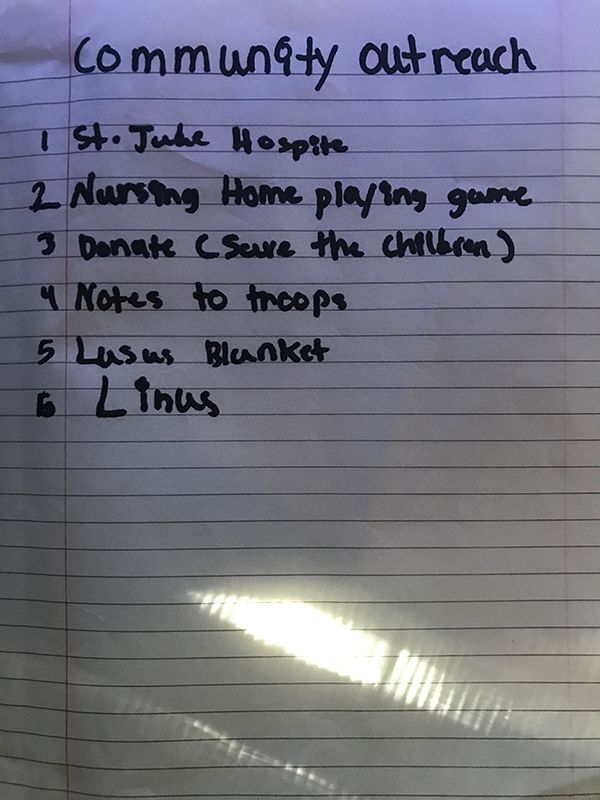 Community outreach
1 St. Jude Hospite
2 Nursing Home playing game
3 Donate (Save the children)
4 Notes to troops
5 Lusus Blanket
6 Linus